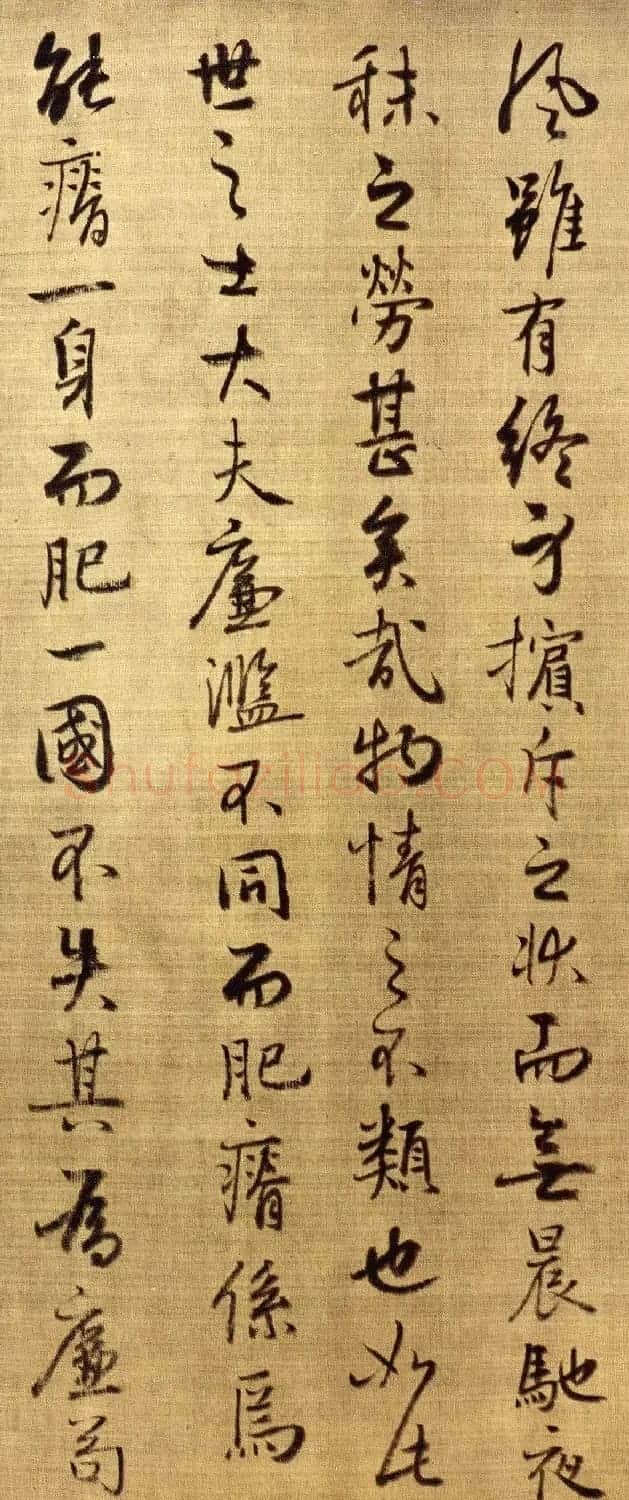 風雖有終身擯斥之狀而無晨馳夜
秣之勞甚矣哉物情之不類也如此
世之士大夫廉濫不同而肥瘠係焉
能瘠一身而肥一國不失其為廉苟